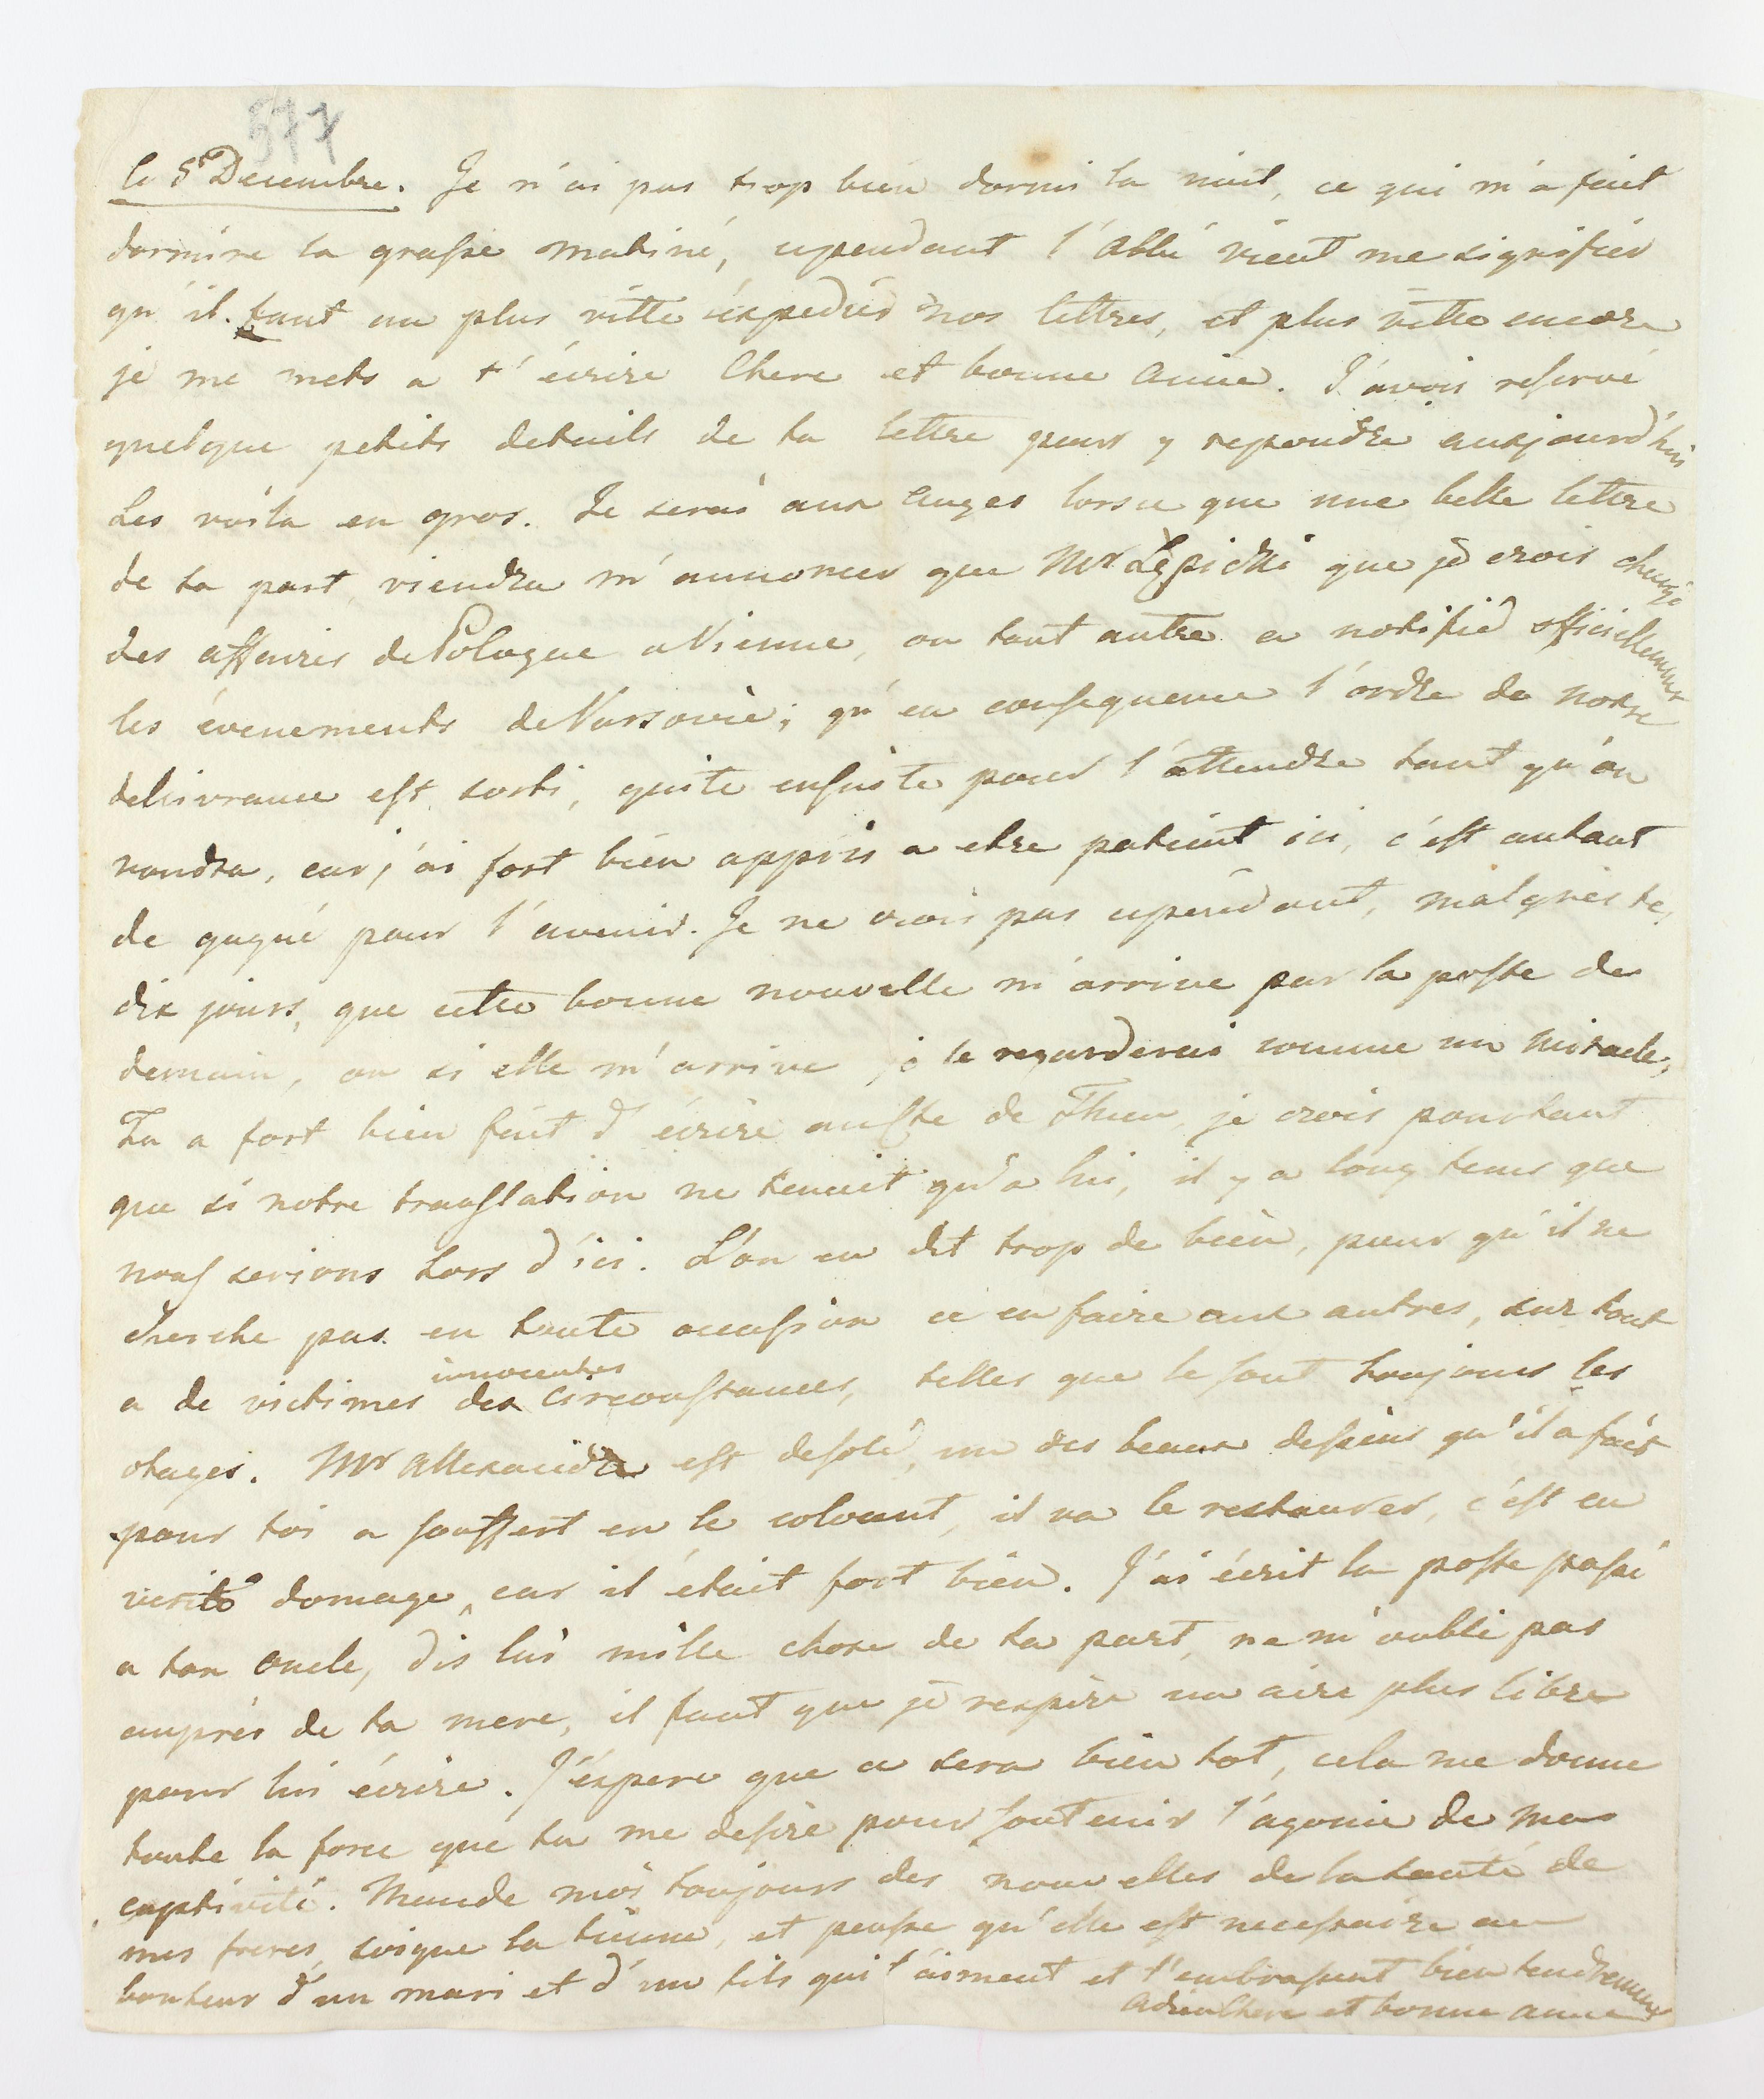 577
le 5 Decembre. Je n'ai pas trop bien dormi la nuit, ce qui m'a fait
dormire la grasse matiné, cependant l'Abbé vient me signifier
qu'il faut au plus vitte éxpedier nos lettres, et plus vitte encore
je me mets a t'écrire Chere et bonne Amie. J'avois reservé
quelque petits details de ta lettre pour y repondre aujourd'hui
Les voila en gros. Je serai aux Anges lorsce que une belle lettre
de ta part, viendra m'annoncer que Mr que je crois chargé
des affaires de Pologne a Vienne, ou tout autre a notifié officiellement
les évenements de Varsovie; qu'en consequence l'ordre de notre
delivrance est sorti, quite ensuite pour l'attendre tant qu'on
voudra, car j'ai fort bien appris a etre patient ici, c'est autant
de gagné pour l'avenir. Je ne crois pas cependant, malgrés tes
dix jours, que cette bonne nouvelle m'arrive par la poste de
demain, ou si elle m'arrive je le regarderai comme un miracle,
Tu a fort bien fait d'écrire au Cte de Thun, je crois pourtant
que si notre translation ne tenait qu'a lui, il y a long tems que
nous serions hors d'ici. L'on en dit trop de bien, pour qu'il ne
cherche pas en toute occassion a en faire aux autres, sur tout
a de victimes innocentes des circonstances, telles que le sont toujours les
otages. Mr Allexandre est desolé, un des beaux dessins qu'il a fait
pour toi a souffert en le colorant, il va le restaurer, c'est en
verité domage, car il était fort bien. J'ai écrit la poste passé
a ton Oncle, dis lui mille chose de ta part, ne m'oubli pas
auprés de ta mere, il faut que je respire un aire plus libre
pour lui écrire. J'éspere que ce sera bien tot, cela me donne
toute la force que tu me desire pour soutenir l'agonie de ma
captivité. Mande moi toujours des nouvelles de la santé de
mes freres, soigne la tienne, et pense qu'elle est necessaire au
bonheur d'un mari et d'un fils qui t'aiment et t'embrassent bien tendrement
Adieu Chere et bonne amie